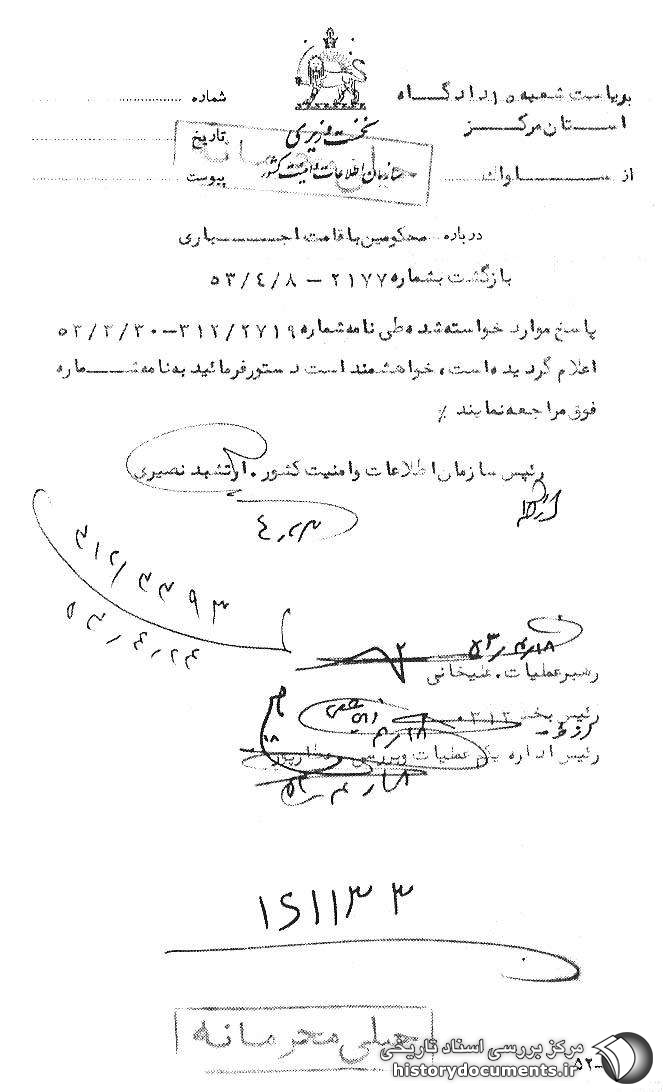 بریاست شعبه ۱۰ دادگاه
استان مرکز
از ساواک
نخست وزیری
سازمان اطلاعات و امنیت کشور
شماره
تاریخ
پیوست
درباره محکومین باقامت اجباری
بازگشت بشماره ۲۱۷۷ – ۵۳/۴/۸
پاسخ موارد خواسته شده طی نامه شماره ۳۱۲/۲۷۱۹–۵۳/۳/۳۰
اعلام گردیده است، خواهشمند است دستور فرمائید به نامه شماره
فوق مراجعه نمایند ٪
رئیس سازمان اطلاعات و امنیت کشور. ارتشبد نصیری
۳۱۲/۳۳۹۳
۵۳/۴/۲۴
۵۳/۴/۱۸
رهبر عملیات.
رئیس بخش ۳۱۲
رئیس اداره یکم عملیات و بررسی
خیلی محرمانه
مرکز بررسی اسناد تاریخی
historydocuments.ir